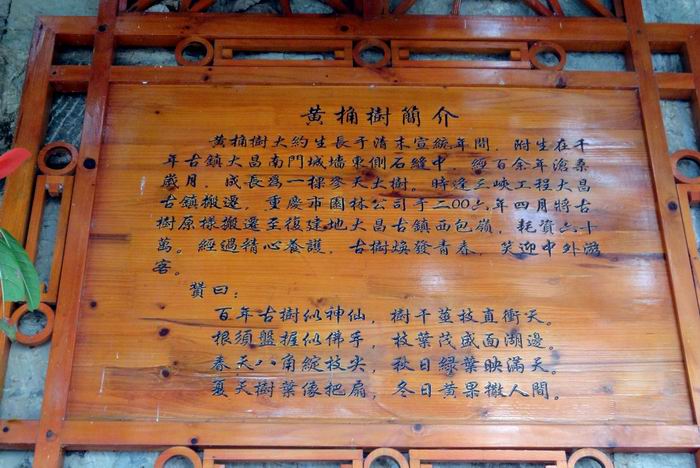 黄桷樹簡介
黄桷樹大約生長于清末宣統年間，附生在千
年古鎮大昌南門城墻東側石縫中，經百余年滄桑
歲月，成長爲一棵參天大樹。時逢三峽工程大昌
古鎮搬遷，重慶市園林公司于二00六年四月將古
樹原樣搬遷至復建地大昌古鎮西包嶺，耗資六十
萬。經過精心養護，古樹焕發青春，笑迎中外游
客。
贊曰：
百年古樹似神仙，樹干莖枝直衝天。
根須盤握似佛手，枝葉茂盛面湖邊。
春天八角綻枝尖，秋日緑葉映滿天。
夏天樹葉像把扇，冬日黄果撒人間。